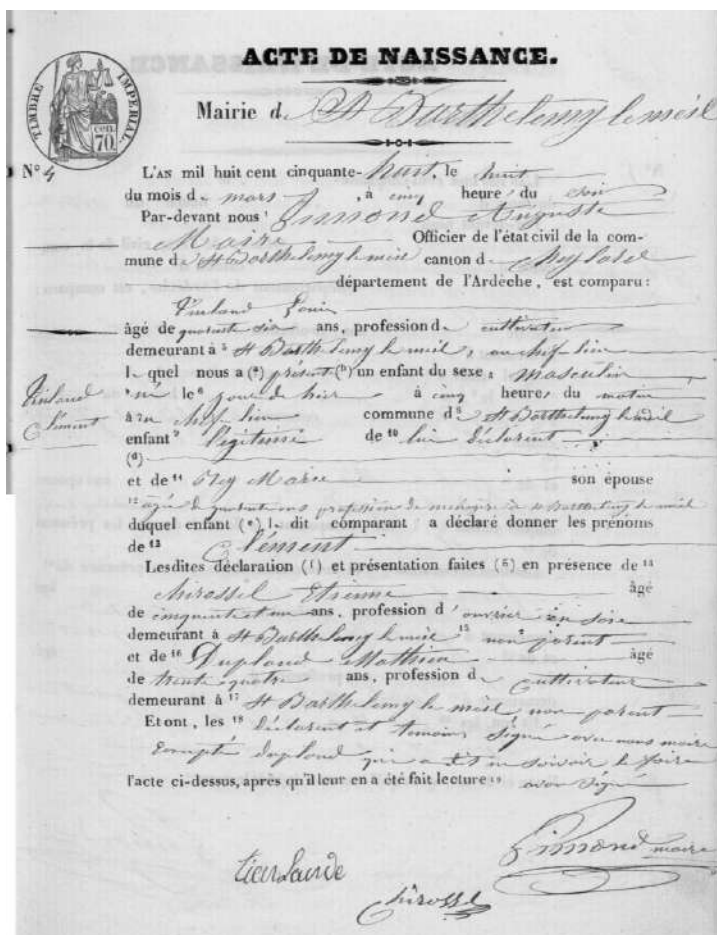 ACTE DE NAISSANCE.
TIMBRE IMPERIAL
cen. 70.
Mairie d. St Barthelemy le meil
N° 4
L'AN mil huit cent cinquante-huit, le huit
du mois d. mars, à cinq heure' du soir
Par-devant nous ' Auguste
Maire Officier de l'état civil de la com-
mune d. St Barthelemy le meil canton d. Cheylard
département de l'Ardèche, est comparu:
Louis
âgé de quarante six ans, profession d. cultivateur
demeurant à 5 St Barthelemy le meil, au chef lieu
l. quel nous a (a) présenté (b) un enfant du sexe masculin
né le 6 jour de hier à cinq heures du matin
Clément
à au chef lieu commune d. 8 St Barthelemy le meil
enfant 9 légitime de 10 lui déclarant
(d)
et de 11 Rey Marie son épouse
12 agée de quarante ans profession de menagère à St Barthelemy le meil
duquel enfant (e) l. dit comparant a déclaré donner les prénoms
de 13 Clément
Lesdites déclaration (f) et présentation faites (g) en présence de 14
Chirossel Etienne âgé
de cinquante et un ans, profession d' ouvrier en soie
demeurant à St Barthelemy le meil 15 non parent
et de 16 Duplaud Mathieu âgé
de trente quatre ans, profession d. cultivateur
demeurant à 17 St Barthelemy le meil non parent
Et ont, les 18 déclarant et temoins signé avec nous maire
Excepté duplaud qui a dit ne savoir le faire
l'acte ci-dessus, après qu'il leur en a été fait lecture 19 avons signé
maire
Chirossel